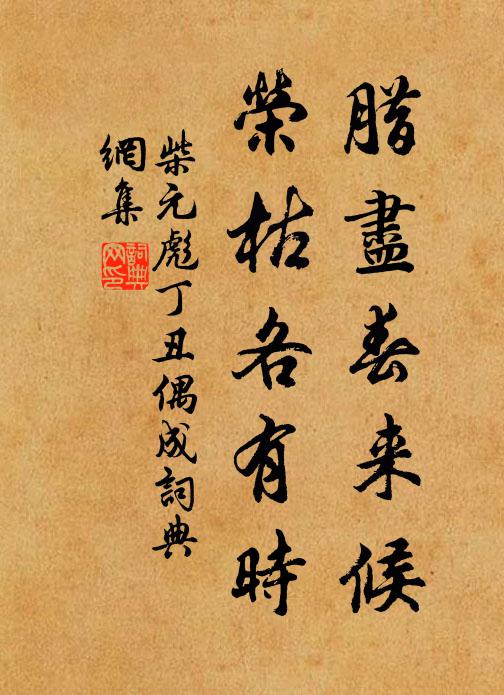 腊盡春来候
榮枯各有時
柴元彪丁丑偶成詞典
網集
詞典網印